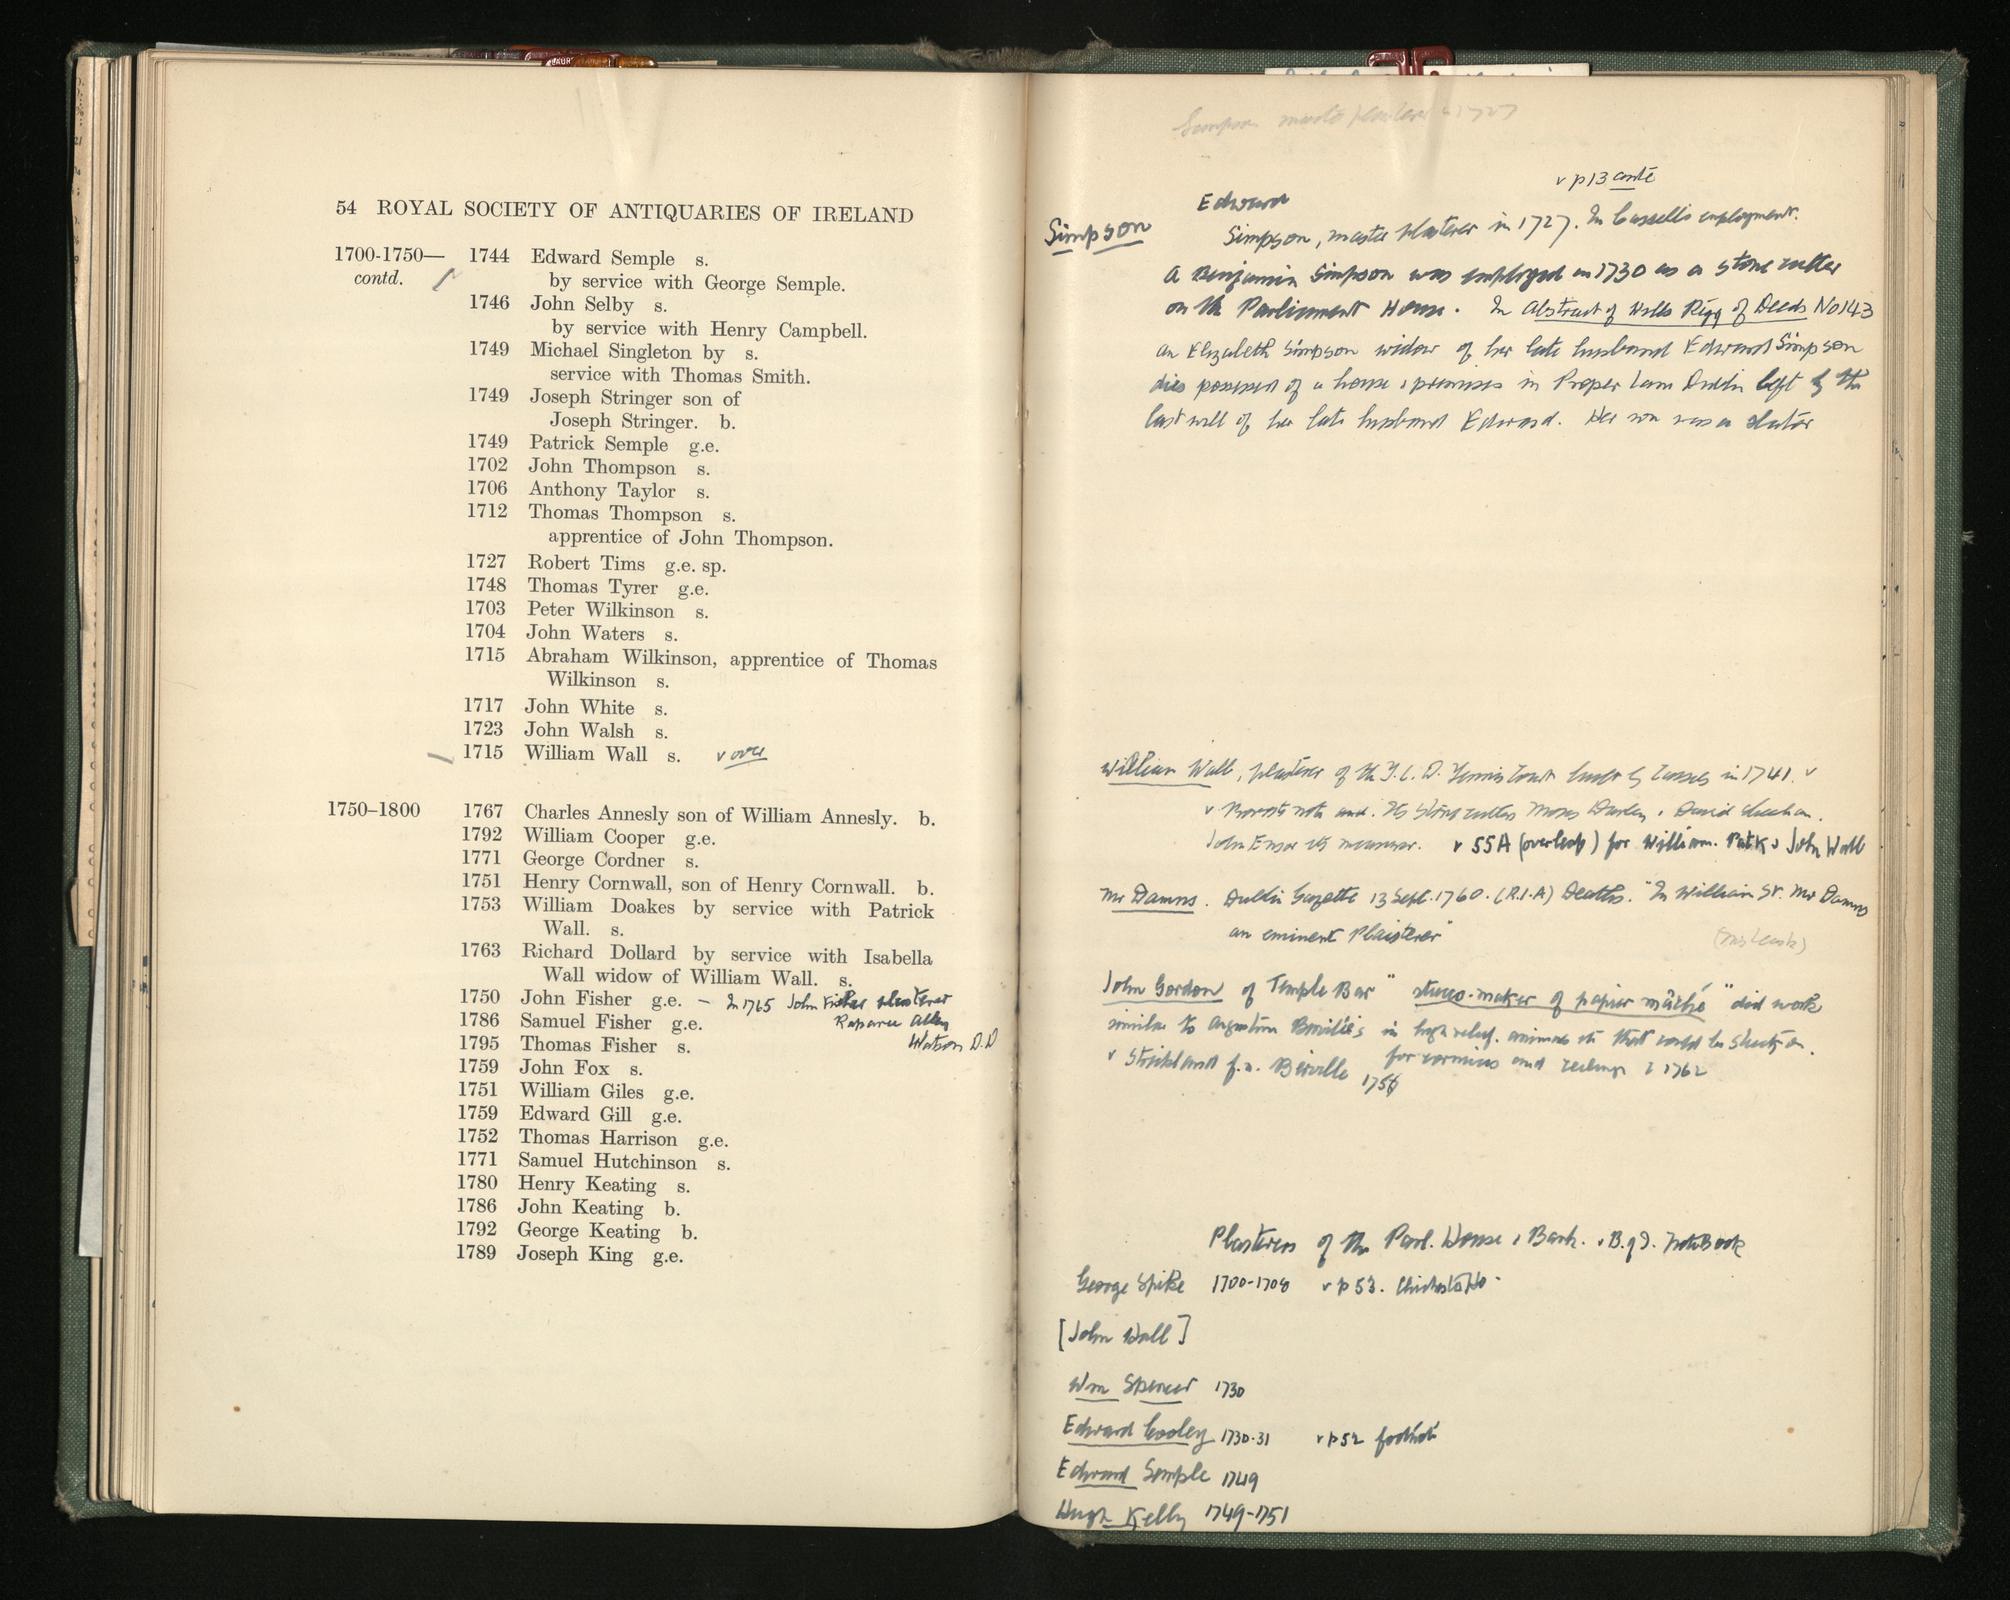 54 ROYAL SOCIETY OF ANTIQUARIES OF IRELAND
1700-1750— 1744 Edward Semple s.
contd. by service with George Semple.
1746 John Selby s.
by service with Henry Campbell.
1749 Michael Singleton by s.
service with Thomas Smith.
1749 Joseph Stringer son of
Joseph Stringer. b.
1749 Patrick Semple g.e.
1702 John Thompson s.
1706 Anthony Taylor s.
1712 Thomas Thompson s.
apprentice of John Thompson.
1727 Robert Tims g.e. sp.
1748 Thomas Tyrer g.e.
1703 Peter Wilkinson s.
1704 John Waters s.
1715 Abraham Wilkinson, apprentice of Thomas
Wilkinson s.
1717 John White s.
1723 John Walsh s.
1715 William Wall s. v over
1750–1800 1767 Charles Annesly son of William Annesly. b.
1792 William Cooper g.e.
1771 George Cordner s.
1751 Henry Cornwall, son of Henry Cornwall. b.
1753 William Doakes by service with Patrick
Wall. s.
1763 Richard Dollard by service with Isabella
Wall widow of William Wall. s.
1750 John Fisher g.e. – In 1765 John Fisher plasterer
1786 Samuel Fisher g.e. Raparee Alley
1795 Thomas Fisher s. Watson D.D
1759 John Fox s.
1751 William Giles g.e.
1759 Edward Gill g.e.
1752 Thomas Harrison g.e.
1771 Samuel Hutchinson s.
1780 Henry Keating s.
1786 John Keating b.
1792 George Keating b.
1789 Joseph King g.e.
Simpson master plasterer in 1727
v p13 ante
Edward
Simpson Simpson, master plasterer in 1727. In Cassells employment.
A Benjamin Simpson was employed in 1730 as a stone cutter
on the Parliament House. In Abstract of Wills Regy of Deeds No 143
an Elizabeth Simpson widow of her late husband Edward Simpson
dies possessed of a house & premises in Proper Lane Dublin left by the
last will of her late husband Edward. Her son was a slater
William Wall, plasterer of the T.C.D. Tennis Court built by Cassels in 1741. v
v Provosts note and. Its stone cutters Moses Darley & David Sheehan.
John Ensor its measurer. v 55A (overleaf) for William. Patk & John Wall
Mr Damns. Dublin Gazette 13 Sept. 1760. (R.I.A) Deaths. "In William St. Mr Damns
an eminent Plaisterer"
(Mrs Leask)
John Gordon of Temple Bar "stucco-maker of papier mâché" did work
similar to Augustin Berville's in high relief. animals etc that could be stuck on.
v Strickland f.n. Berville 1756 for cornices and ceilings 1762
Plasterers of the Parl. House & Bank. v B. of I. NoteBook
George Spike 1700-1708 v p 53. Chichester Ho.
[John Wall]
Wm Spencer 1730
Edward Cooley 1730-31 v p 52 footnote
Edward Semple 1749
Hugh Kelly 1749-1751